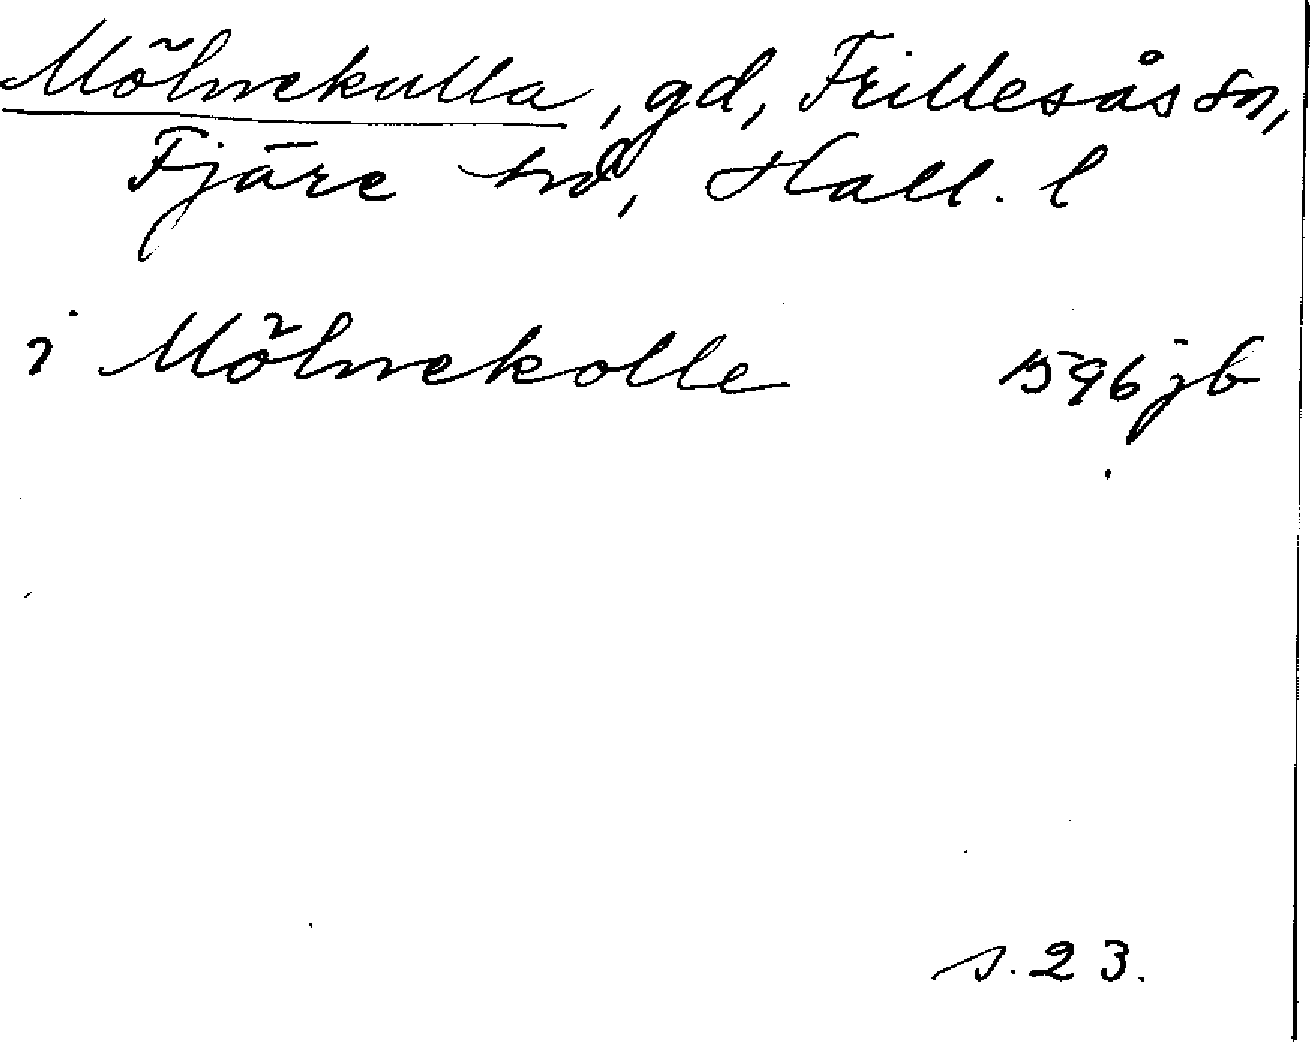 Mölnekulla, gd, Frillesås sn,
Fjäre hd, Hall. l
i Mölnekolle 1596 jb
s. 23.